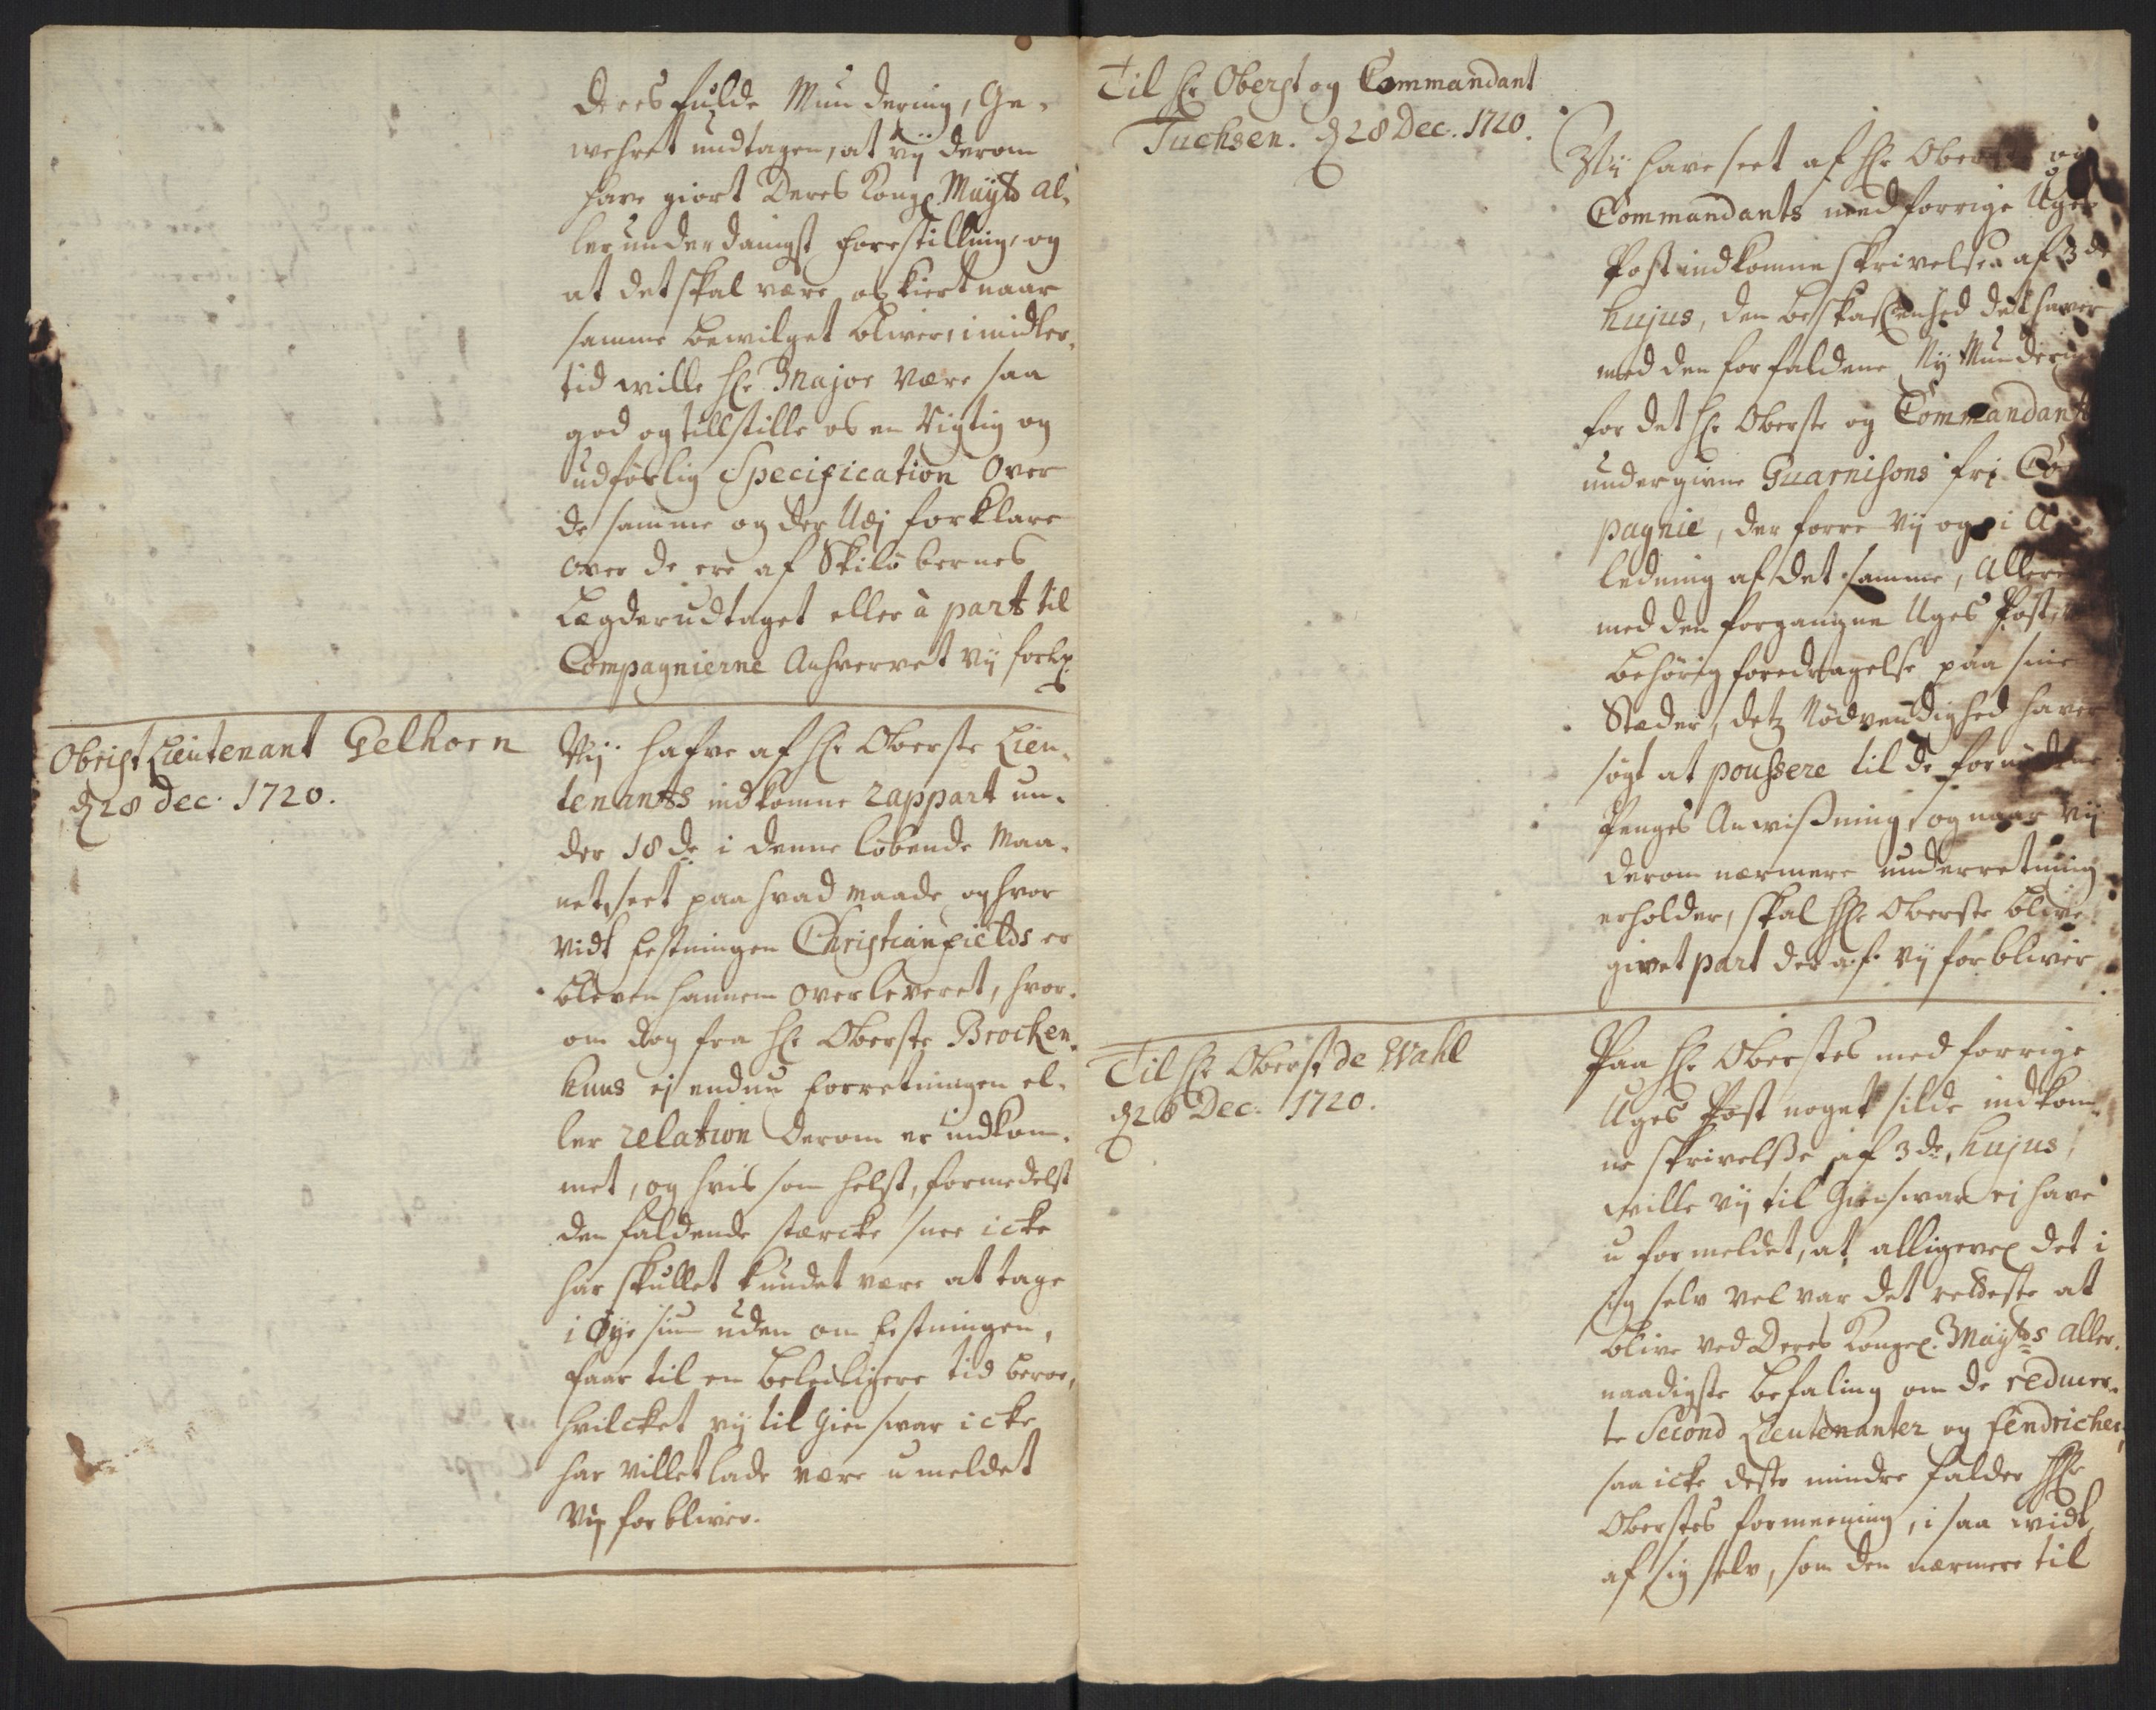 deres fulde Mundering, Ge-
wehret undtagen, at vij derom
have giort Deres Kongl. Mayts al-
lerunderdanigst forestilling, og
at det skal være os kiert naar
samme bewilget bliver, imidler-
tid wille Hr Major være saa
god og tillstille os en Rigtig og
udførlig Specification Over
de samme og der Udj forklare
over de ere af Skiløbernes
Lægder udtaget eller à part til
Compagnierne Anhvervet vij forbl.
Obrist Lieutenant Gelhorn
d 28 Dec. 1720.
Vij hafve af Hr Oberste Lieu-
tenants indkomne rappart un-
der 18de i denne løbende Maa-
net, seet paa hvad maade og hvor
vidt festningen Christianfields er
bleven hannem overleveret, hvor-
om dog fra Hr Oberste Brocken-
huus ej endnu forretningen el-
ler relation derom er indkom-
met, og hvis som helst, formedelst
den faldende stercke snee icke
har skullet kundet være at tage
i Øye siun uden om festningen,
faar til en beleiligere tid beroe,
hvilcket vij til Giensvar icke
har villet lade være u meldet
Vij forbliver.
Til Hr Oberst og Commandant
Tuchsen. d 28 Dec. 1720.
Vij have seet af Hr Oberstes og
Commandants med forrige Uges
Post indkomne skrivelse af 3de
hujus, den beskaffenhed det haver
med den forfaldene Ny Mundering
for det Hr Oberste og Commandants
undergivne Guarnisons fri Com
pagnie, der forre vij og i An
ledning af det samme, Allere
med den forgangne Uges Post,
behørig foredragelse paa sine
Stæder, detz Nødvendighed haver
søgt at poussere til de fornødne
Penges Anvisning, og naar vij
derom nærmere underretning
erholder, skal Hr Oberste blive
givet part der af. vij forbliver
Til Hr Oberst de Wahl
d 28 Dec. 1720.
Paa Hr Oberstes med forrige
Uges Post noget silde indkom-
ne skrivelse af 3de hujus,
wille vij til Giensvar ej have
u formeldet, at alligevel det i
sig selv vel var det redeste at
blive ved Deres Kongel. Mayts aller-
naadigste befaling om de reducer-
te Second Lieutenanter og fendricher,
saa icke desto mindre falder Hr
Oberstes formeening, i saa widt
af sig selv, som den nærmere til